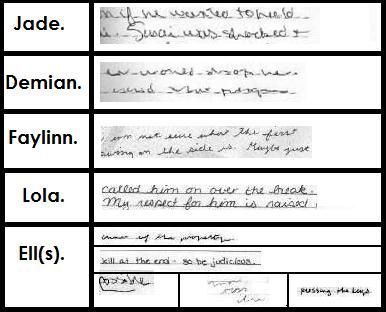 Jade.
if he wanted to hold
Susai was shocked &
Demian.
would drop her
Faylinn.
am not sure what the first
on the side is. Maybe just
Lola.
called him on over the break.
My respect for him is raised
Ell(s).
of the property
kill at the end - so be judicious.
possible
pressing the keys